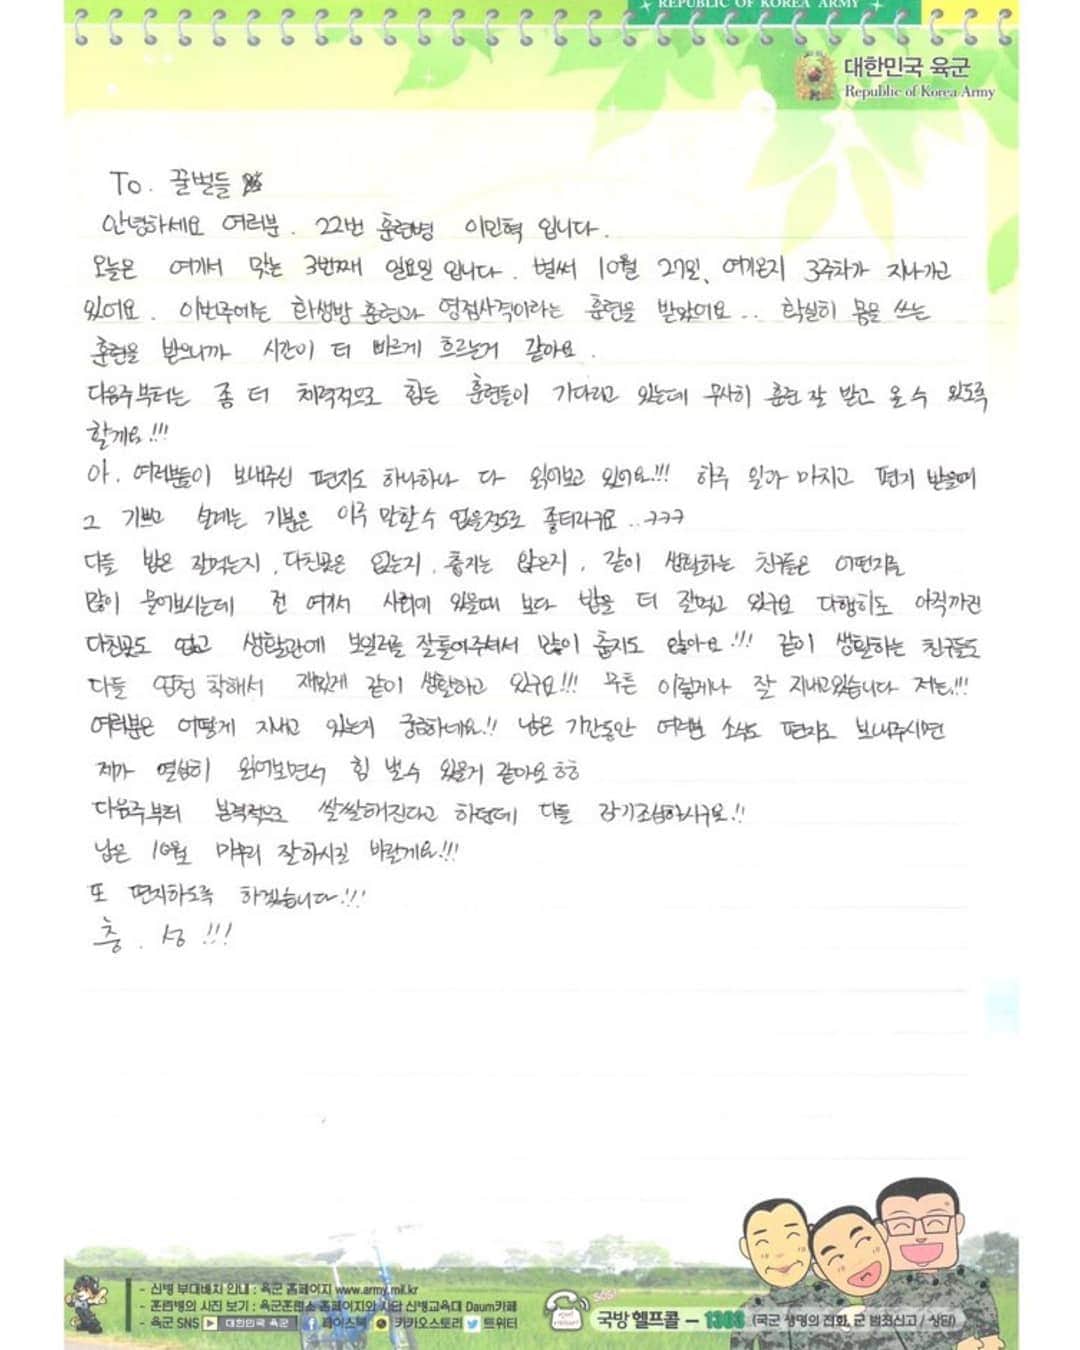 REPUBLIC OF KOREA ARMY
대한민국 육군
Republic of Korea Army
To. 꿀벌들
안녕하세요 여러분. 22번 훈련병 이민혁 입니다.
오늘은 여기서 맞는 3번째 일요일 입니다. 벌써 10월 27일, 여기온지 3주차가 지나가고
있어요. 이번주에는 화생방 훈련과 영점사격이라는 훈련을 받았어요.. 확실히 몸을 쓰는
훈련을 받으니까 시간이 더 빠르게 흐르는거 같아요.
다음주부터는 좀 더 체력적으로 힘든 훈련들이 기다리고 있는데 무사히 훈련 잘 받고 올 수 있도록
할게요!!!
아. 여러분들이 보내주신 편지도 하나하나 다 읽어보고 있어요!!! 하루 일과 마치고 편지 받을때
그 기쁘고 설레는 기분은 이루 말할수 없을정도로 좋더라구요..ㅋㅋㅋ
다들 밥은 잘먹는지, 다친곳은 없는지, 춥지는 않은지, 같이 생활하는 친구들은 어떤지를
많이 물어보시는데 전 여기서 사회에 있을때 보다 밥을 더 잘먹고 있구요 다행히도 아직까진
다친곳도 없고 생활관에 보일러를 잘틀어주셔서 많이 춥지도 않아요!!! 같이 생활하는 친구들도
다들 엄청 착해서 재밌게 같이 생활하고 있구요!!! 무튼 이렇게나 잘 지내고있습니다 저는!!!
여러분은 어떻게 지내고 있는지 궁금하네요!! 남은 기간동안 여러분 소식도 편지로 보내주시면
제가 열심히 읽어보면서 힘 낼수 있을거 같아요ㅎㅎ
다음주부터 본격적으로 쌀쌀해진다고 하던데 다들 감기조심하시구요!!
남은 10월 마무리 잘하시길 바랄게요!!!
또 편지하도록 하겠습니다!!!
충. 성!!!
- 신병 부대배치 안내 : 육군 홈페이지 www.army.mil.kr
- 훈련병의 사진 보기 : 육군훈련소 홈페이지와 사단 신병교육대 Daum카페
- 육군 SNS 대한민국 육군 페이스북 카카오스토리 트위터
SOS!
국방헬프콜 - 1303 (국군 생명의 전화, 군 범죄신고 / 상담)